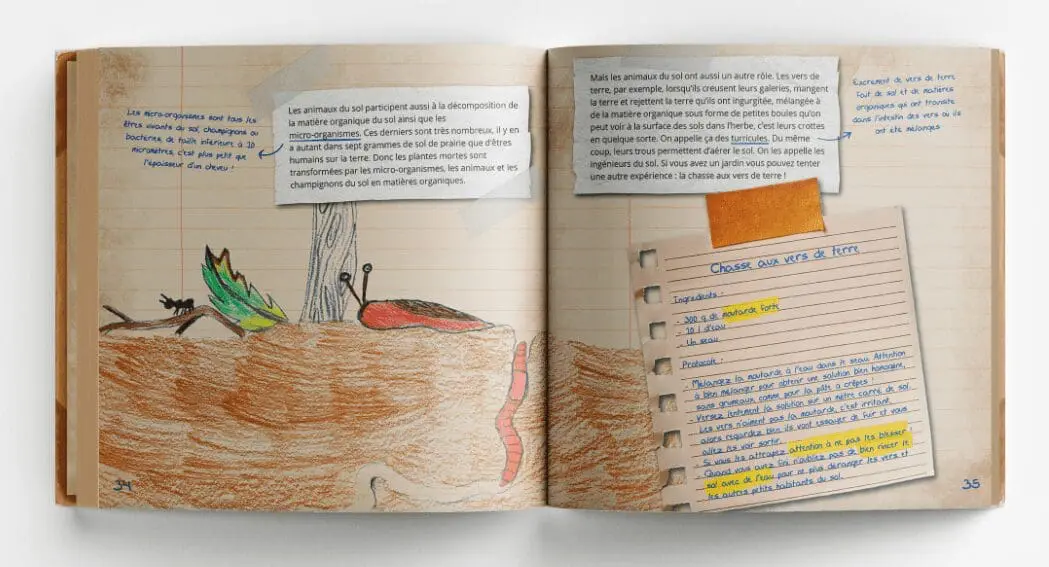 Les micro-organismes sont tous les
êtres vivants du sol, champignons ou
bactéries, de taille inférieure à 10
micromètres, c'est plus petit que
l'épaisseur d'un cheveu !
Les animaux du sol participent aussi à la décomposition de
la matière organique du sol ainsi que les
micro-organismes. Ces derniers sont très nombreux, il y en
a autant dans sept grammes de sol de prairie que d'êtres
humains sur la terre. Donc les plantes mortes sont
transformées par les micro-organismes, les animaux et les
champignons du sol en matières organiques.
34
Mais les animaux du sol ont aussi un autre rôle. Les vers de
terre, par exemple, lorsqu'ils creusent leurs galeries, mangent
la terre et rejettent la terre qu'ils ont ingurgitée, mélangée à
de la matière organique sous forme de petites boules qu'on
peut voir à la surface des sols dans l'herbe, c'est leurs crottes
en quelque sorte. On appelle ça des turricules. Du même
coup, leurs trous permettent d'aérer le sol. On les appelle les
ingénieurs du sol. Si vous avez un jardin vous pouvez tenter
une autre expérience : la chasse aux vers de terre !
Excrement de vers de terre
fait de sol et de matières
organiques qui ont transité
dans l'intestin des vers où ils
ont été mélangés
Chasse aux vers de terre
Ingrédients :
- 300 g de moutarde forte
- 10 l d'eau
- Un seau
Protocole :
- Mélangez la moutarde à l'eau dans le seau. Attention
à bien mélanger pour obtenir une solution bien homogène,
sans grumeaux comme pour la pâte à crêpes !
- Versez lentement la solution sur un mètre carré de sol.
Les vers n'aiment pas la moutarde, c'est irritant,
alors regardez bien ils vont essayer de fuir et vous
allez les voir sortir.
- Si vous les attrapez attention à ne pas les blesser !
- Quand vous avez fini n'oubliez pas de bien rincer le
sol avec de l'eau pour ne plus déranger les vers et
les autres petits habitants du sol.
35